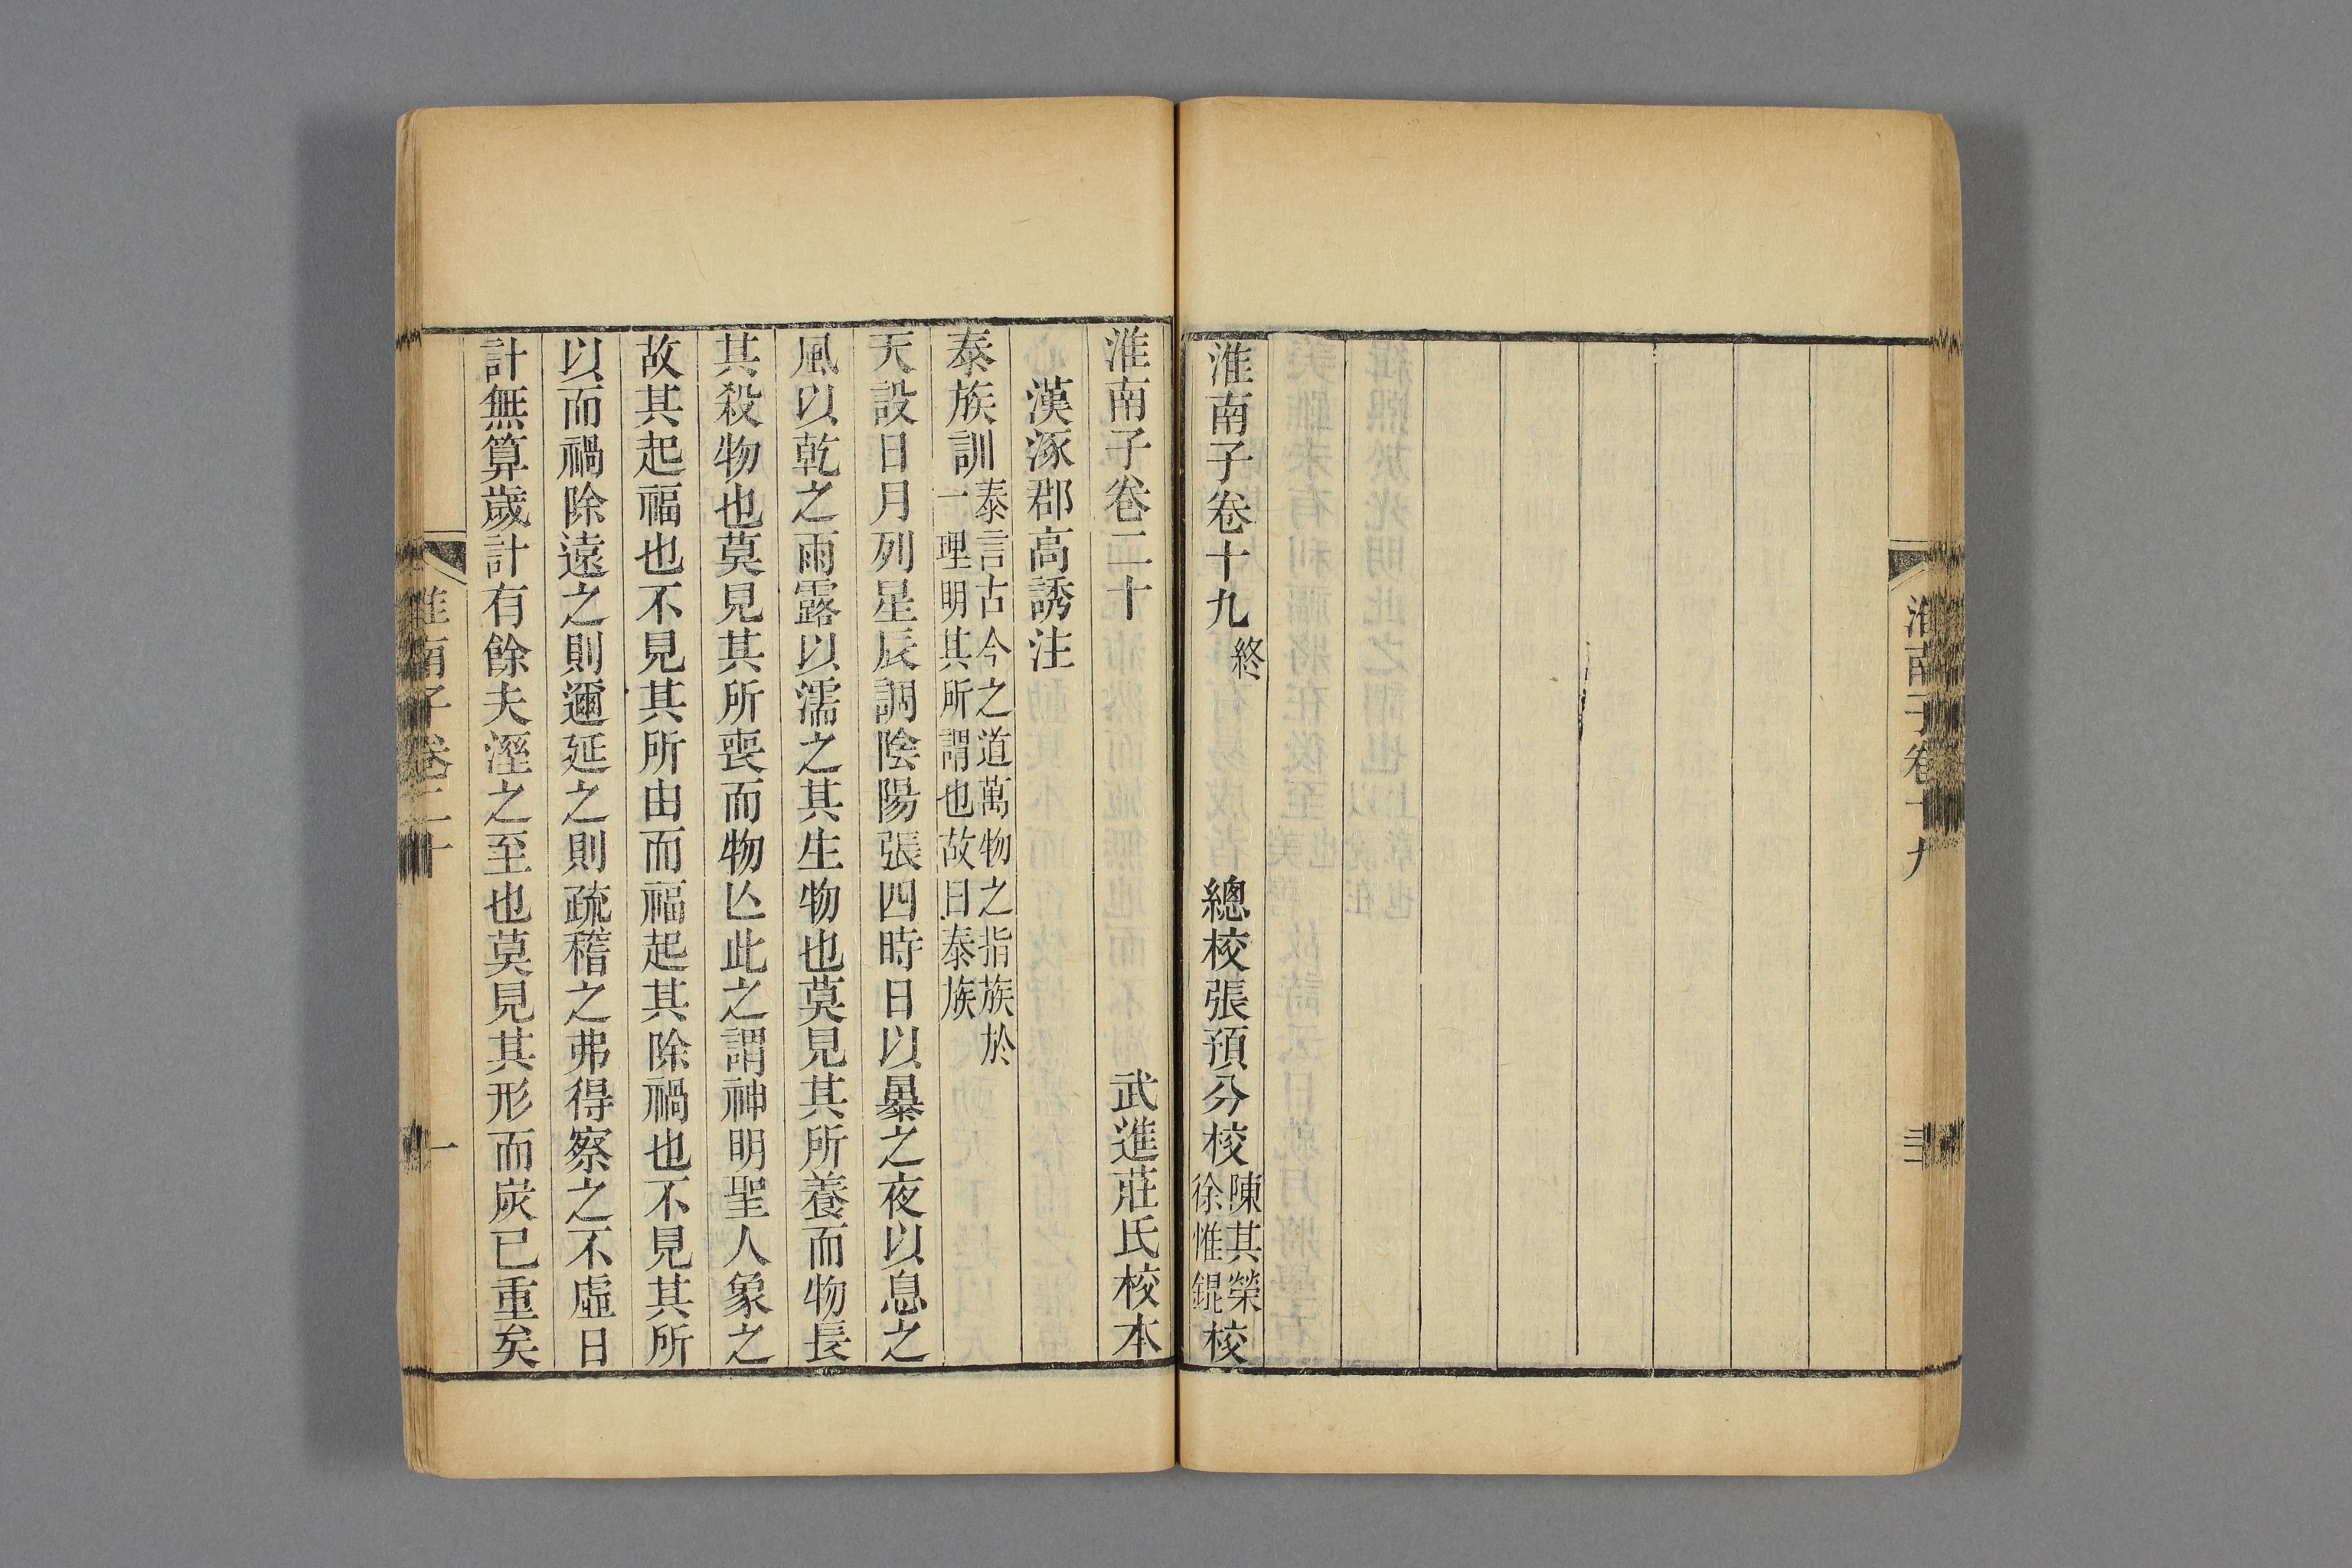 淮南子卷十九終　總校張預分校陳其榮徐惟錕校
淮南子卷十九
淮南子卷二十　武進莊氏校本
漢涿郡高誘注
泰族訓泰言古今之道萬物之指族於一理明其所謂也故曰泰族
天設日月列星辰調陰陽張四時日以暴之夜以息之
風以乾之雨露以濡之其生物也莫見其所養而物長
其殺物也莫見其所喪而物亾此之謂神明聖人象之
故其起福也不見其所由而福起其除禍也不見其所
以而禍除遠之則邇延之則疏稽之弗得察之不虛日
計無算歲計有餘夫溼之至也莫見其形而炭已重矣
淮南子卷二十　一